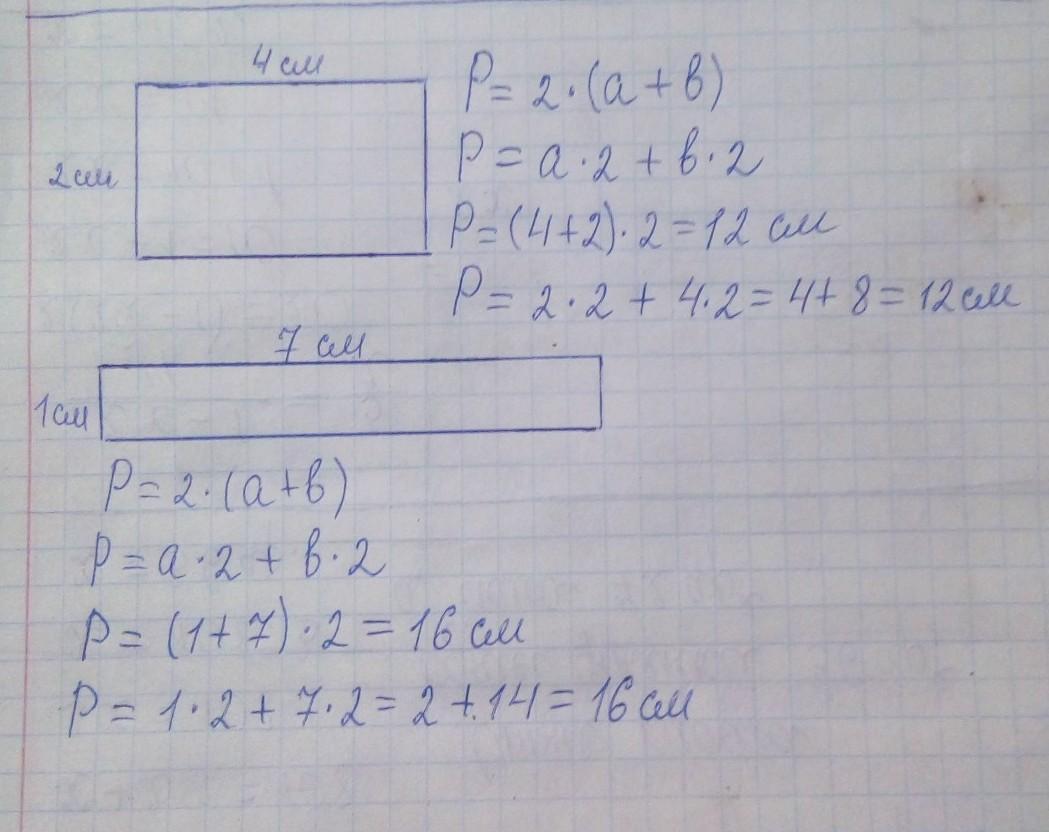 4 см
P = 2·(a + b)
2 см
P = a·2 + b·2
P = (4+2)·2 = 12 см
P = 2·2 + 4·2 = 4 + 8 = 12 см
7 см
1 см
P = 2·(a + b)
P = a·2 + b·2
P = (1 + 7)·2 = 16 см
P = 1·2 + 7·2 = 2 + 14 = 16 см